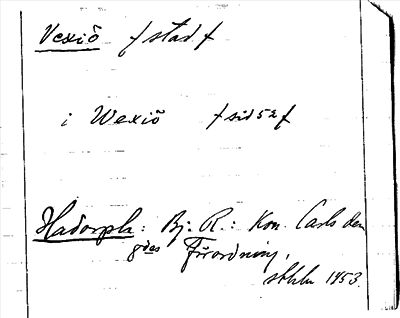 Vexiö / stad /
i Wexiö / sid 52 /
Hadorph: Bj. R.: Kon. Carls den
9des Förordning,
sthlm 1953.